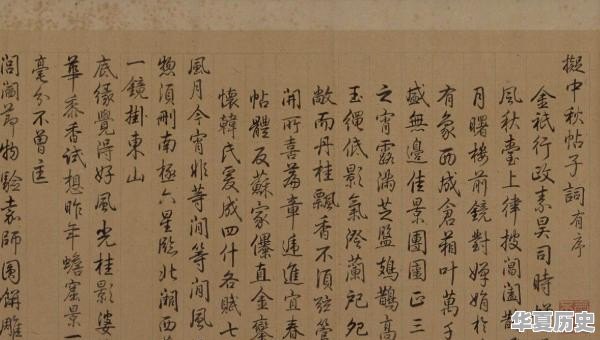 擬中秋帖子詞有序
金祇行政素昊司時
風秋臺上律披閶闔
月曙樓前鏡對嬋娟於
有象西成倉葙叶萬
盛無邊佳景團圞正三
之宵露滿芝盤鳷鵲高
玉繩低影氣蘭
敞而丹桂飄香不須弦管
開所喜篇章遞進宜春
帖體反蘇家儤直金鑾
懷韓氏爰成四什各賦七
風月今宵非等閒等閒風
惣須刪南極六星臨北闕西
一鏡掛東山
底緣覺得好風光桂影婆
華黍香試想昨年蟾窟景一
毫分不曾
閶節物驗師圓餅雕
华夏历史